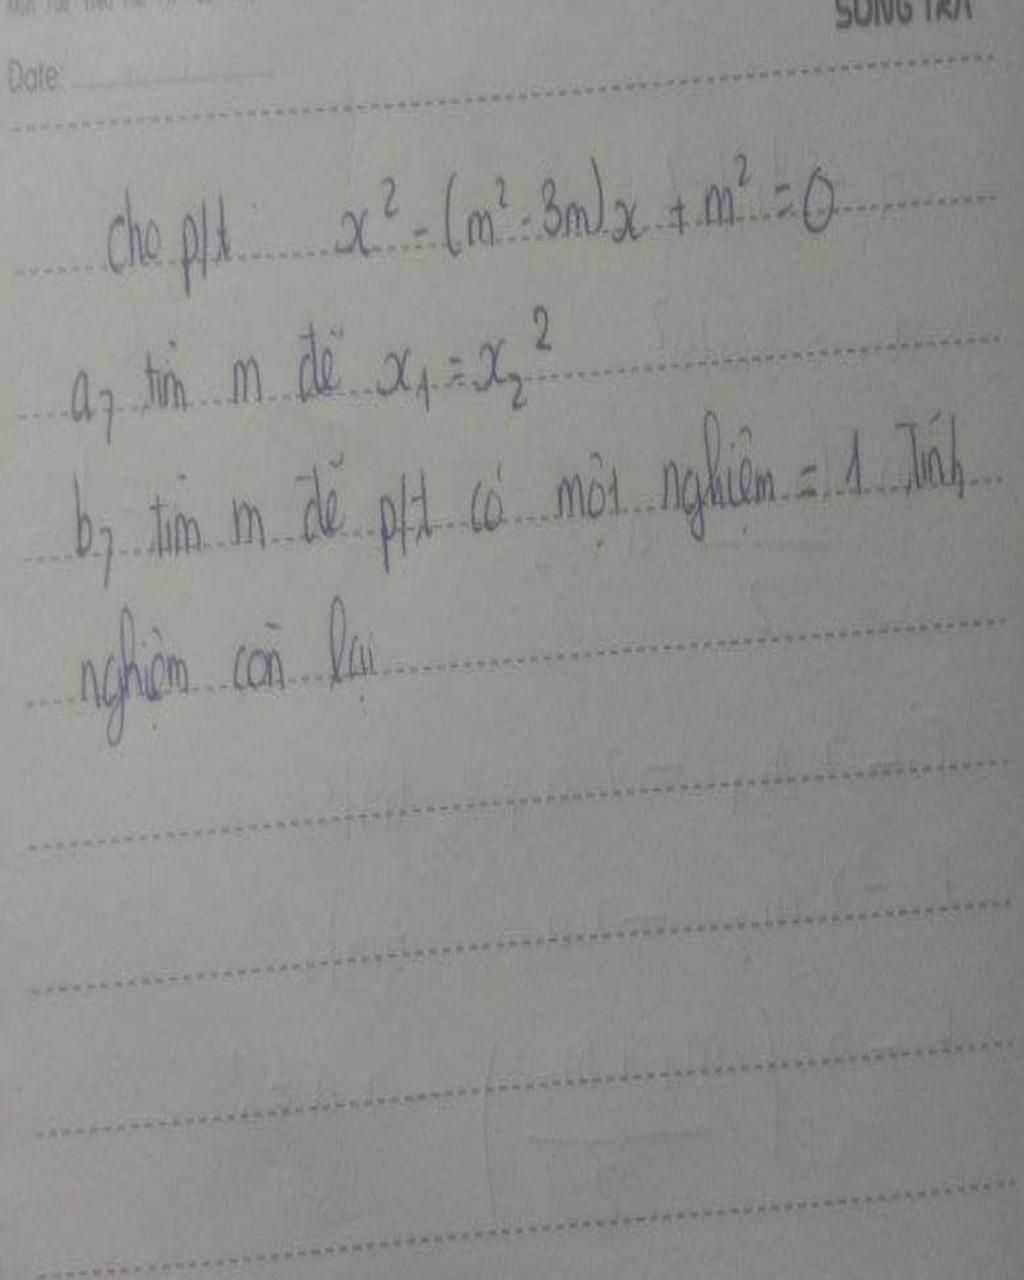 SONG TRÀ
Date:
Cho p/t: x² - (m² - 3m)x + m² = 0
a, tìm m để x₁ = x₂²
b, tìm m để p/t có một nghiệm = 1. Tính
nghiệm còn lại